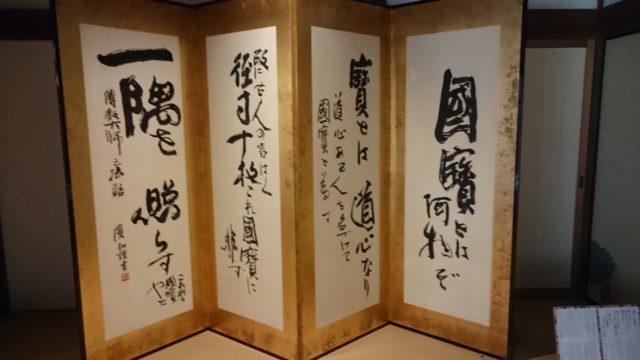 國寶とは
何物ぞ
寶とは道心なり
道心ある人を名づけて
國寶と為す
故に古人の言はく
径寸十枚これ國寶に
非ず
一隅を照らす
國寶
傳教大師之法語